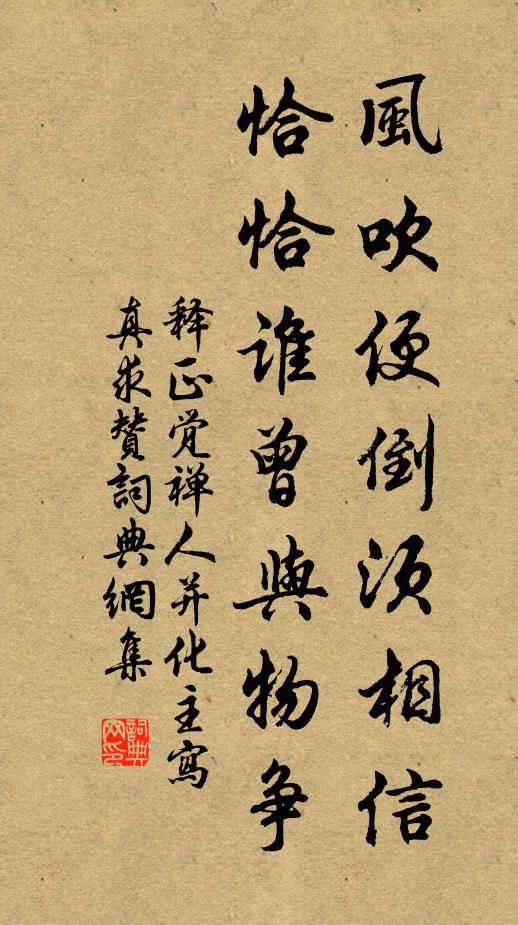 風吹便倒須相信
恰恰誰曾與物争
释正覚禅人并化主寫
真求贊詞典網集
詞典
网印